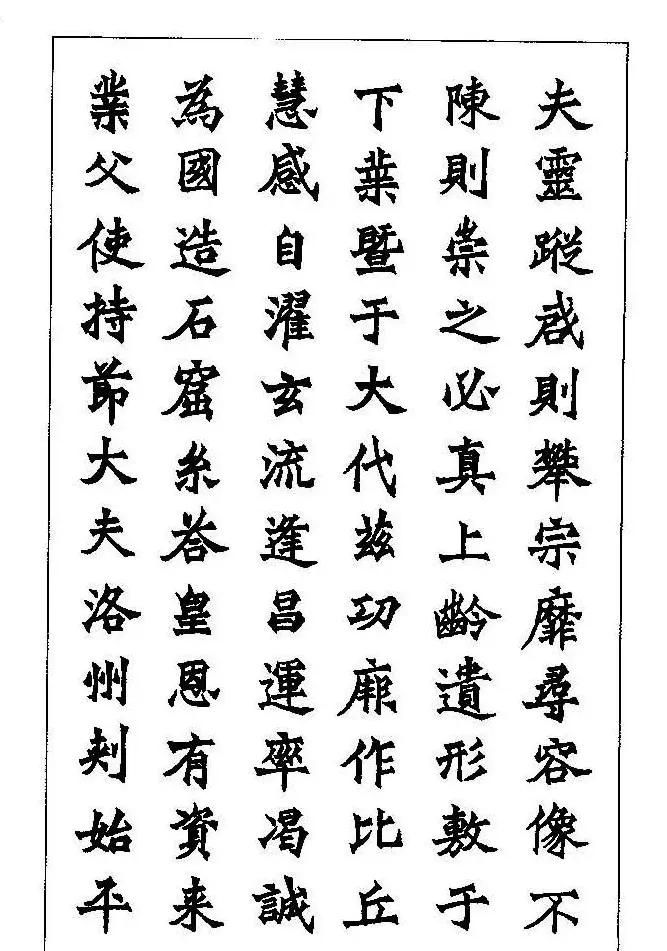 夫靈蹤启則攀宗靡尋容像不
陳則崇之必真上齡遺形敷于
下葉暨于大代茲功厥作比丘
慧感自濯玄流逢昌運率渴誠
為國造石窟糸荅皇恩有資来
業父使持節大夫洛州刾始平